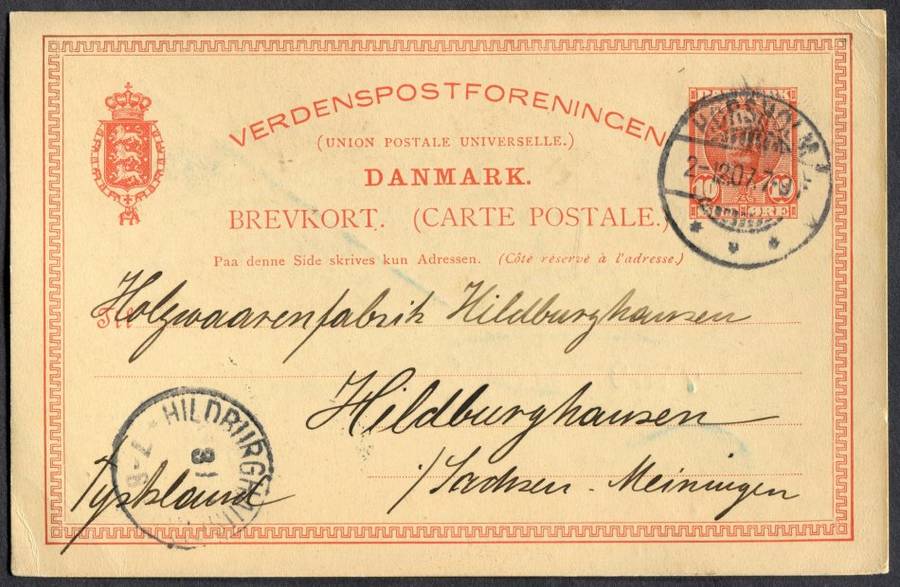 VERDENSPOSTFORENINGEN
(UNION POSTALE UNIVERSELLE.)
DANMARK.
BREVKORT. (CARTE POSTALE.)
Paa denne Side skrives kun Adressen. (Côté réservé à l'adresse.)
HØRSHOLM
2-12.07. 7-9
10 10
ØRE
Til
Holzwaarenfabrik Hildburghausen
Hildburghausen
/Sachsen-Meiningen
Tyskland
HILDBURGHAU